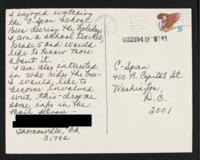 I enjoyed watching
the C-Span School
Bus during the Holidays
I am a school teacher,
Grade 5 and would
like to know more
about it.
I am also interested
in who rides the bus
I would like to
become involved
with this - drop me
some info in the
mail please
Thomasville, GA.
31792
C-Span
400 N. Capitol St.
Washington,
D.C.
2001